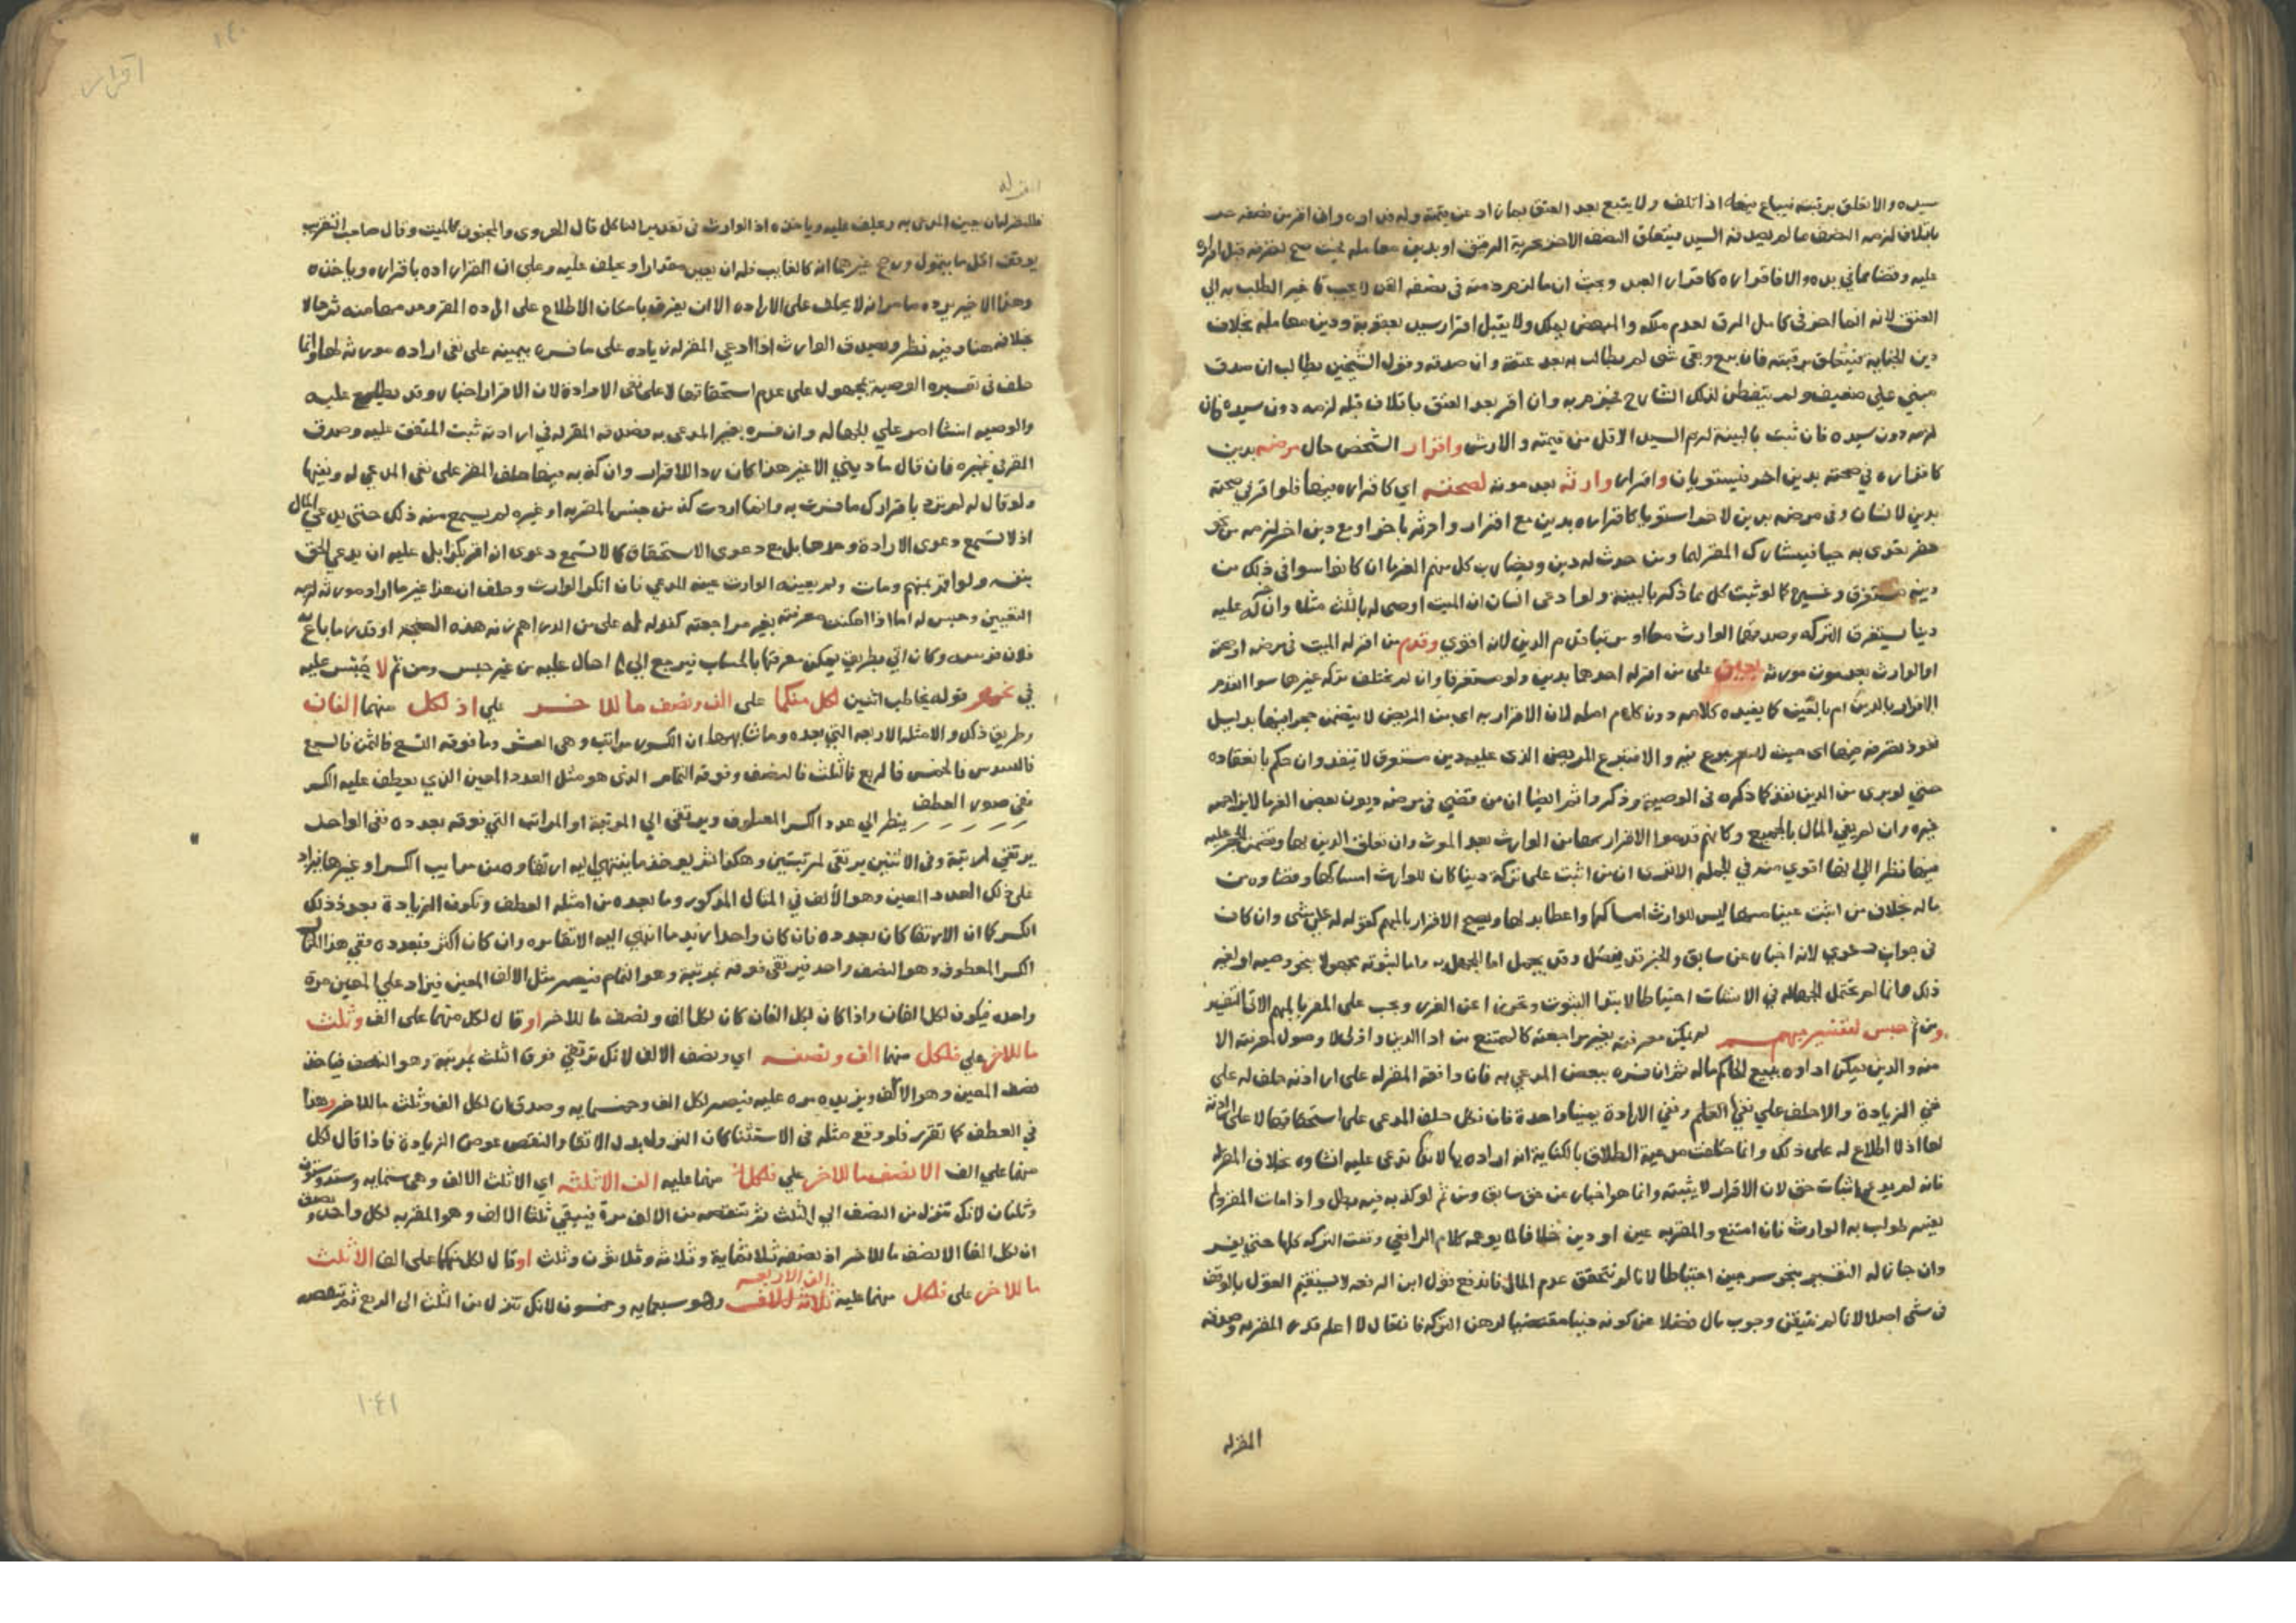 سيده والا تعلق برقبته فيباع فيها اذا تلف ولا يتبع بعد العتق بما زاد عن قيمته وله فداوه وان اقر من نصفه حر
باتلاف لزمه النصف ما لم يصدقه السيد فيتعلق النصف الاخر بحرية الرقيق او بدين معاملة بحيث صح تصرفه قبل اقراره
عليه وقضا مما في يده والا فاقراره كاقرار العبد وبحث ان ما لزم ذمته في نصفه القن لا يجب تاخير الطلب به الى
العتق لانه انما اخر في كامل الرق لعدم ملكه والمبعض يملك ولا يقبل اقرار سيد بعقوبة ودين معاملة بخلاف
دين الجناية فيتعلق برقبته فان بيع وبقي شي لم يطالب به بعد عتقه وان صدقه وقول الشيخين يطالب ان صدق
مبني على ضعيف ولم يتفطن لذلك الشارح فجزم به وان اقر بعد العتق باتلاف قبله لزمه دون سيده فان
لزمه دون سيده فان ثبت بالبينة لزم السيد الاقل من قيمته والارش واقرار الشخص حال مرضه بدين
كاقراره في صحته بدين اخر فيستويان واقرار وارثه بعد موته لصحته اي كاقراره فيها فلو اقر في صحته
بدين لانسان وفي مرضه بدين لاخر استويا كاقراره بدين مع اقرار وارثه باخر او مع دين اخر لزمه من
حفر تعدى به حيا فيشارك المقر لهما ومن حدث له دين ويضارب كل منهم الغرما ان كانوا سوا في ذلك من
دينه مستغرق وغيره كما لو ثبت كل مما ذكر بالبينة ولو ادعى انسان ان الميت اوصى له بالثلث مثلا وان له عليه
دينا يستغرق التركه وصدقهما الوارث معا او مرتبا قدم الدين لانه اقوى وقدم من اقر له الميت في مرضه او صحته
او الوارث بعد موت مورثه بعين على من اقر له احدهما بدين ولو مستغرقا وان لم يخلف تركه غيرها سوا اتقدم
الاقرار بالدين ام بالعين كما يفيده كلامه دون كلام اصله لان الاقرار به اي من المريض لا يتضمن حجرا فيها بدليل
نفوذ تصرفه فيها اي حيث لا تبرع فيه والا فتبرع المريض الذي عليه دين مستغرق لا ينفذ وان حكم بانعقاده
حتى لو برى من الدين نفذ كما ذكره في الوصية وذكروا ثم ايضا ان من قضى في مرضه ديون بعض الغرما لا يزاحمه
غيره وان لم يف المال بالجميع وكانهم قدموا الاقرار بها من الوارث بعد الموت وان تعلق الدين بها وتضمن الحجر عليه
فيها نظرا الى انها اقوى منه في الجملة الا ترى ان من اثبت على تركة دينا كان للوارث امساكها وقضاوه من
ماله بخلاف من اثبت عينا منها ليس للوارث امساكها واعطا بدلها ويصح الاقرار بالمبهم كقوله له علي شي وان كان
في جواب دعوى لانه اخبار عن سابق والخبر قد يفصل وقد يجمل اما للجهل به واما لثبوته مجهولا بنحو وصية او لغير
ذلك وانما لم يحتمل الجهالة في الانشات احتياطا لابتدا الثبوت وتحرزا عن الغرر ويجب على المقر بالمبهم الاتي التفسير
ومن ثم حبس لتفسير مبهم لم يمكن معرفته بغير مراجعته كالممتنع من ادا الدين واولى لا وصول لمعرفته الا
منه والدين يمكن اداوه ببيع الحاكم ماله ثم ان فسره ببعض المدعي به فان وافقه المقر له على ارادته حلف له على
نفي الزيادة والا حلف على نفيها العلم ونفي الارادة يمينا واحدة فان نكل حلف المدعى على استحقاقها لا على ارادته
لها اذ لا اطلاع له على ذلك وانما حلفت مدعية الطلاق بالكناية انه اراده بها لانها تدعي عليه انشاوه بخلاف المقر له
فانه لم يدع اثبات حق لان الاقرار لا يثبته وانما هو اخبار عن حق سابق ومن ثم لو كذبه فيه بطل واذا مات المقر
بعينه طولب به الوارث فان امتنع والمقر به عين او دين خلافا لما يوهمه كلام الرافعي وقفت التركه كلها حتى يفسر
وان جاز له التفسير بنحو سرجين احتياطا لانا لم نتحقق عدم المال فاندفع قول ابن الرفعه لا يستقيم القول بالوقف
في شي اصلا لانا لم نتيقن وجوب مال فضلا عن كونه مقتضيا لرهن التركة فان قال لا اعلم قدره المقر به وصدقه
المقر له
اقرار
١٤٠
المقر له
فللمقر له ان يعين المدعى به ويحلف عليه وياخذه اذ الوارث في تقدير الناكل قال الهروي والمجنون كالميت وقال صاحب التقريب
يوقف اكل ما يتمول ورجح غيرهما انه كالغايب فله ان يعين مقدارا ويحلف عليه وعلى ان المقر اراده باقراره وياخذه
وهذا الاخير يرده ما مر انه لا يحلف على الاراده الا ان يفرق بامكان الاطلاع على اراده المقر وعدمها منه ثم حالا
بخلافه هنا وفيه نظر ويصدق الوارث اذا ادعي المقر له زياده على ما فسره بيمينه على نفي اراده مورثه لها وانما
حلف في تفسيره الوصية بمجهول على عدم استحقاقها لا على نفي الارادة لان الاقرار اخبار وقد يطلع عليه
والوصية انشا امر علي الجهاله وان فسره بغير المدعى به فصدقه المقر له في ارادته ثبت المتفق عليه وصدق
المقر في غيره فان قال ما ديني الا غير هذا كان ردا للاقرار وان كذبه فيها حلف المقر على نفي المدعى له ونفيها
ولو قال له لم ترد باقرارك ما فسرت به وانما اردت كذا من جنس المقر به او غيره لم يسمع منه ذلك حتى يدعي المال
اذ لا تسمع دعوى الارادة وحدها بل مع دعوى الاستحقاق كما لا تسمع دعوى انه اقر بكذا بل عليه ان يدعي الحق
نفسه ولو اقر بمبهم ومات ولم يعينه الوارث عينه المدعي فان انكر الوارث وحلف ان هذا غير ما اراد مورثه لزمه
التعيين وحبس له اما اذا امكنت معرفته بغير مراجعته كقوله له على من الدراهم زنة هذه الصنجة او قدر ما باع به
فلان فرسه وكان اتي بطريق يمكن معرفتها بالحساب فيرجع الى ما احال عليه من غير حبس ومن ثم لا حبس عليه
في نحو قوله يخاطب اثنين لكل منكما على الف ونصف ما للاخر علي اذ لكل منهما الفان
وطريق ذلك والامثله الاربعه التي بعده وما شابهها ان الكسور مراتب وهي العشر وما فوقه التسع فالثمن فالسبع
فالسدس فالخمس فالربع فالثلث فالنصف وفوقه التمام الذي هو مثل العدد المعين الذي يعطف عليه الكسر
ففي صور العطف ينظر الي عدد الكسر المعطوف ويرتقي الي المرتبة او المراتب التي فوقه بعدده ففي الواحد
يرتقي لمرتبة وفي الاثنين يرتقي لمرتبتين وهكذا ثم يوخذ ما ينتهي اليه ارتقاوه من مراتب الكسر او غيرها فيزاد
على ذلك العدد المعين وهو الالف في المثال المذكور وما بعده من امثلة العطف وتكون الزيادة بعدد ذلك
الكسر كما ان الارتقا كان بعدده فان كان واحدا زيد ما انتهي اليه الارتقا مره وان كان اكثر فبعدده ففي هذا المثال
الكسر المعطوف وهو النصف واحد فيرتقى فوقه بمرتبة وهو التمام فيصير مثل الالف المعين فيزاد علي المعين مرة
واحده فيكون لكل الفان واذا كان لكل الفان كان لكل الف ونصف ما للاخر او قال لكل منهما على الف وثلث
ما للاخر علي فلكل منهما الف ونصفه اي ونصف الالف لانك ترتقي فوق الثلث بمرتبة وهو النصف فياخذ
نصف المعين وهو الالف ويزيده مره عليه فيصير لكل الف وخمسمايه وصدق ان لكل الف وثلث ما للاخر وهذا
في العطف كما تقرر فلو وقع مثله في الاستثنا كان النزول بدل الارتقا والنقص عوض الزيادة فاذا قال لكل
منهما علي الف الا نصف ما للاخر علي فلكل منهما عليه الف الا ثلثه اي الا ثلث الالف وهي ستمايه وستة وستون
وثلثان لانك تنزل من النصف الي الثلث ثم تنقصه من الالف مرة فيبقي ثلثا الالف وهو المقر به لكل واحد ونصف
ان لكل الفا الا نصف ما للاخر اذ نصفه ثلاثماية وثلاثة وثلاثون وثلث او قال لكل منهما على الف الا ثلث
ما للاخر على فلكل منهما عليه ثلاثة الاف الف الا ربعه وهو سبعمايه وخمسون لانك تنزل من الثلث الى الربع ثم تنقصه
١٠٤١